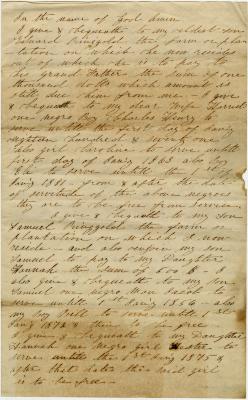 In the name of God amen
I give & bequeath to my eldest son
Edward Ringgold the farm or plan
tation on which he now resides
out of which he is to pay to
his grand Father the sum of one
thousand dolls which amount is
still due him from me - I give
& bequeath to my dear Wife Harriet
one negro Boy Charles Henry to
serve until the first day of Janry
eighteen hundred & seventy one
also girl Caroline to serve until
first day of Janry 1863 also Boy
to serve until the 1st
Janry 1881 - from & after the date
of servitude of the above negroes
they are to be free from service -
I give & bequeath to my Son
Samuel Ringgold the farm or
plantation on which I now
reside - and also my son
Samuel to pay to my Daughter
Hannah the sum of 500 $ - I
also give & bequeath to my Son
Samuel one negro Man Jacob to
serve until 1st Janry 1856 - also
my Boy Bill to serve until 1st
Janry 1872 & then to be free -
I give & bequeath to my Daughter
Hannah one Negro girl to
serve until the 1st Janry 1875 &
after that date this said girl
is to be free -